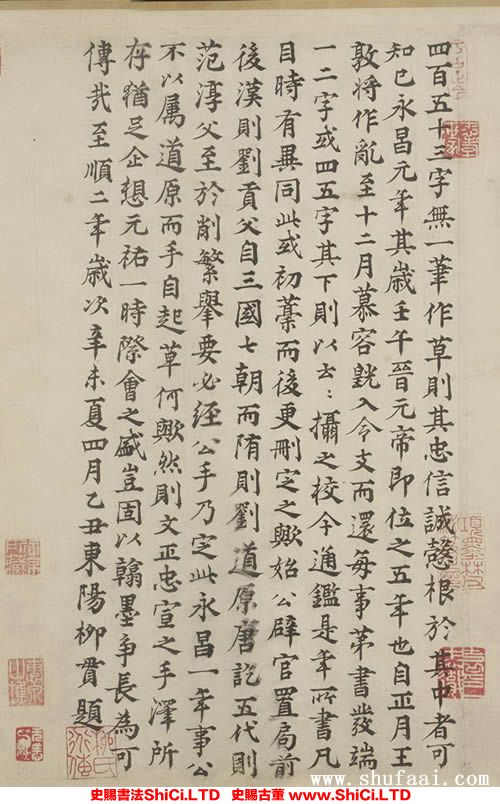 四百五十三字無一筆作草則其忠信誠愨根於其中者可
知已永昌元年其歲壬午晉元帝即位之五年也自正月王
敦將作亂至十二月慕容皝入令支而還每事第書發端
一二字或四五字其下則以云云攝之校今通鑑是年所書凡
目時有異同此或初藁而後更刪定之歟始公辟官置局前
後漢則劉貢父自三國七朝而隋則劉道原唐訖五代則
范淳父至於削繁舉要必經公手乃定此永昌一年事公
不以屬道原而手自起草何歟然則文正忠宣之手澤所
存猶足企想元祐一時際會之盛豈固以翰墨爭長為可
傳哉至順二年歲次辛未夏四月乙丑東陽柳貫題
柳氏
www.shufaai.com
史賜書法ShiCi.LTD 史賜古董 www.ShiCi.LTD